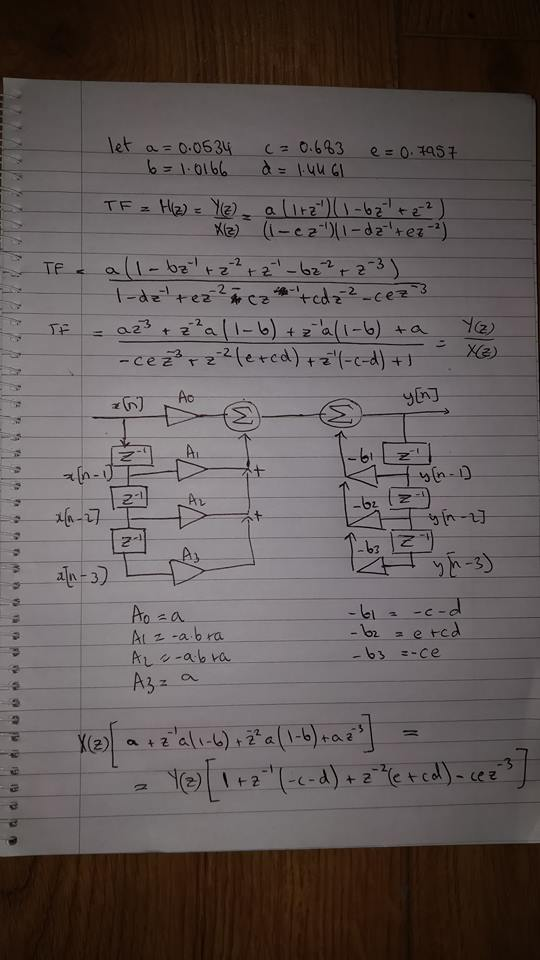 let a = 0.0534 c = 0.683 e = 0.7957
b = 1.0166 d = 1.4461
TF = H(z) = Y(z)/X(z) = a(1+z⁻¹)(1-bz⁻¹+z⁻²) / (1-cz⁻¹)(1-dz⁻¹+ez⁻²)
TF = a(1-bz⁻¹+z⁻²+z⁻¹-bz⁻²+z⁻³) / 1-dz⁻¹+ez⁻²-cz⁻¹+cdz⁻²-cez⁻³
TF = az⁻³+z⁻²a(1-b)+z⁻¹a(1-b)+a / -cez⁻³+z⁻²(e+cd)+z⁻¹(-c-d)+1 = Y(z)/X(z)
x[n] A0 Σ Σ y[n]
z⁻¹ A1 -b1 z⁻¹
x[n-1] + y[n-1]
z⁻¹ A2 -b2 z⁻¹
x[n-2] + y[n-2]
z⁻¹ A3 -b3 z⁻¹
x[n-3] y[n-3)
A0 = a -b1 = -c-d
A1 = -a·b+a -b2 = e+cd
A2 = -a·b+a -b3 = -ce
A3 = a
X(z)[a+z⁻¹a(1-b)+z⁻²a(1-b)+az⁻³] =
= Y(z)[1+z⁻¹(-c-d)+z⁻²(e+cd)-cez⁻³]